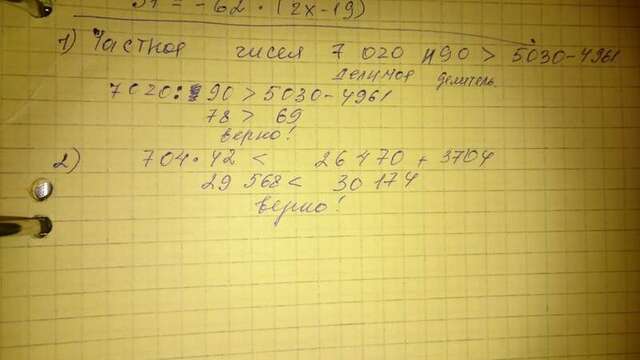 31 = -62 · (2x-19)
1) Частное чисел 7 020 и 90 > 5030-4961
делимое делитель
7020:90 > 5030-4961
78 > 69
верно!
2) 704·42 < 26 470 + 3704
29 568 < 30 174
верно!